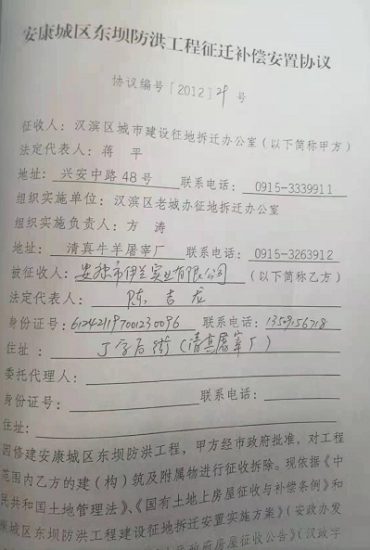 安康城区东坝防洪工程征迁补偿安置协议
协议编号［2012］21 号
征收人：汉滨区城市建设征地拆迁办公室（以下简称甲方）
法定代表人：蒋 平
地址：兴安中路 48 号 联系电话：0915-3339911
组织实施单位：汉滨区老城办征地拆迁办公室
组织实施负责人：方 涛
地址：清真牛羊屠宰厂 联系电话：0915-3263912
被征收人：安康市伊兰实业有限公司（以下简称乙方）
法定代表人：陈 吉 龙
身份证号：612421197001230096 联系电话：
住址：丁字后街（清真屠宰厂）
委托代理人：
身份证号： 联系电话：
住址：
因修建安康城区东坝防洪工程，甲方经市政府批准，对工程
范围内乙方的建（构）筑及附属物进行征收拆除。现依据《中
民共和国土地管理法》、《国有土地上房屋征收与补偿条例》和
康城区东坝防洪工程建设征地拆迁安置实施方案》（安政办发
政府房屋征收公告》（汉政字